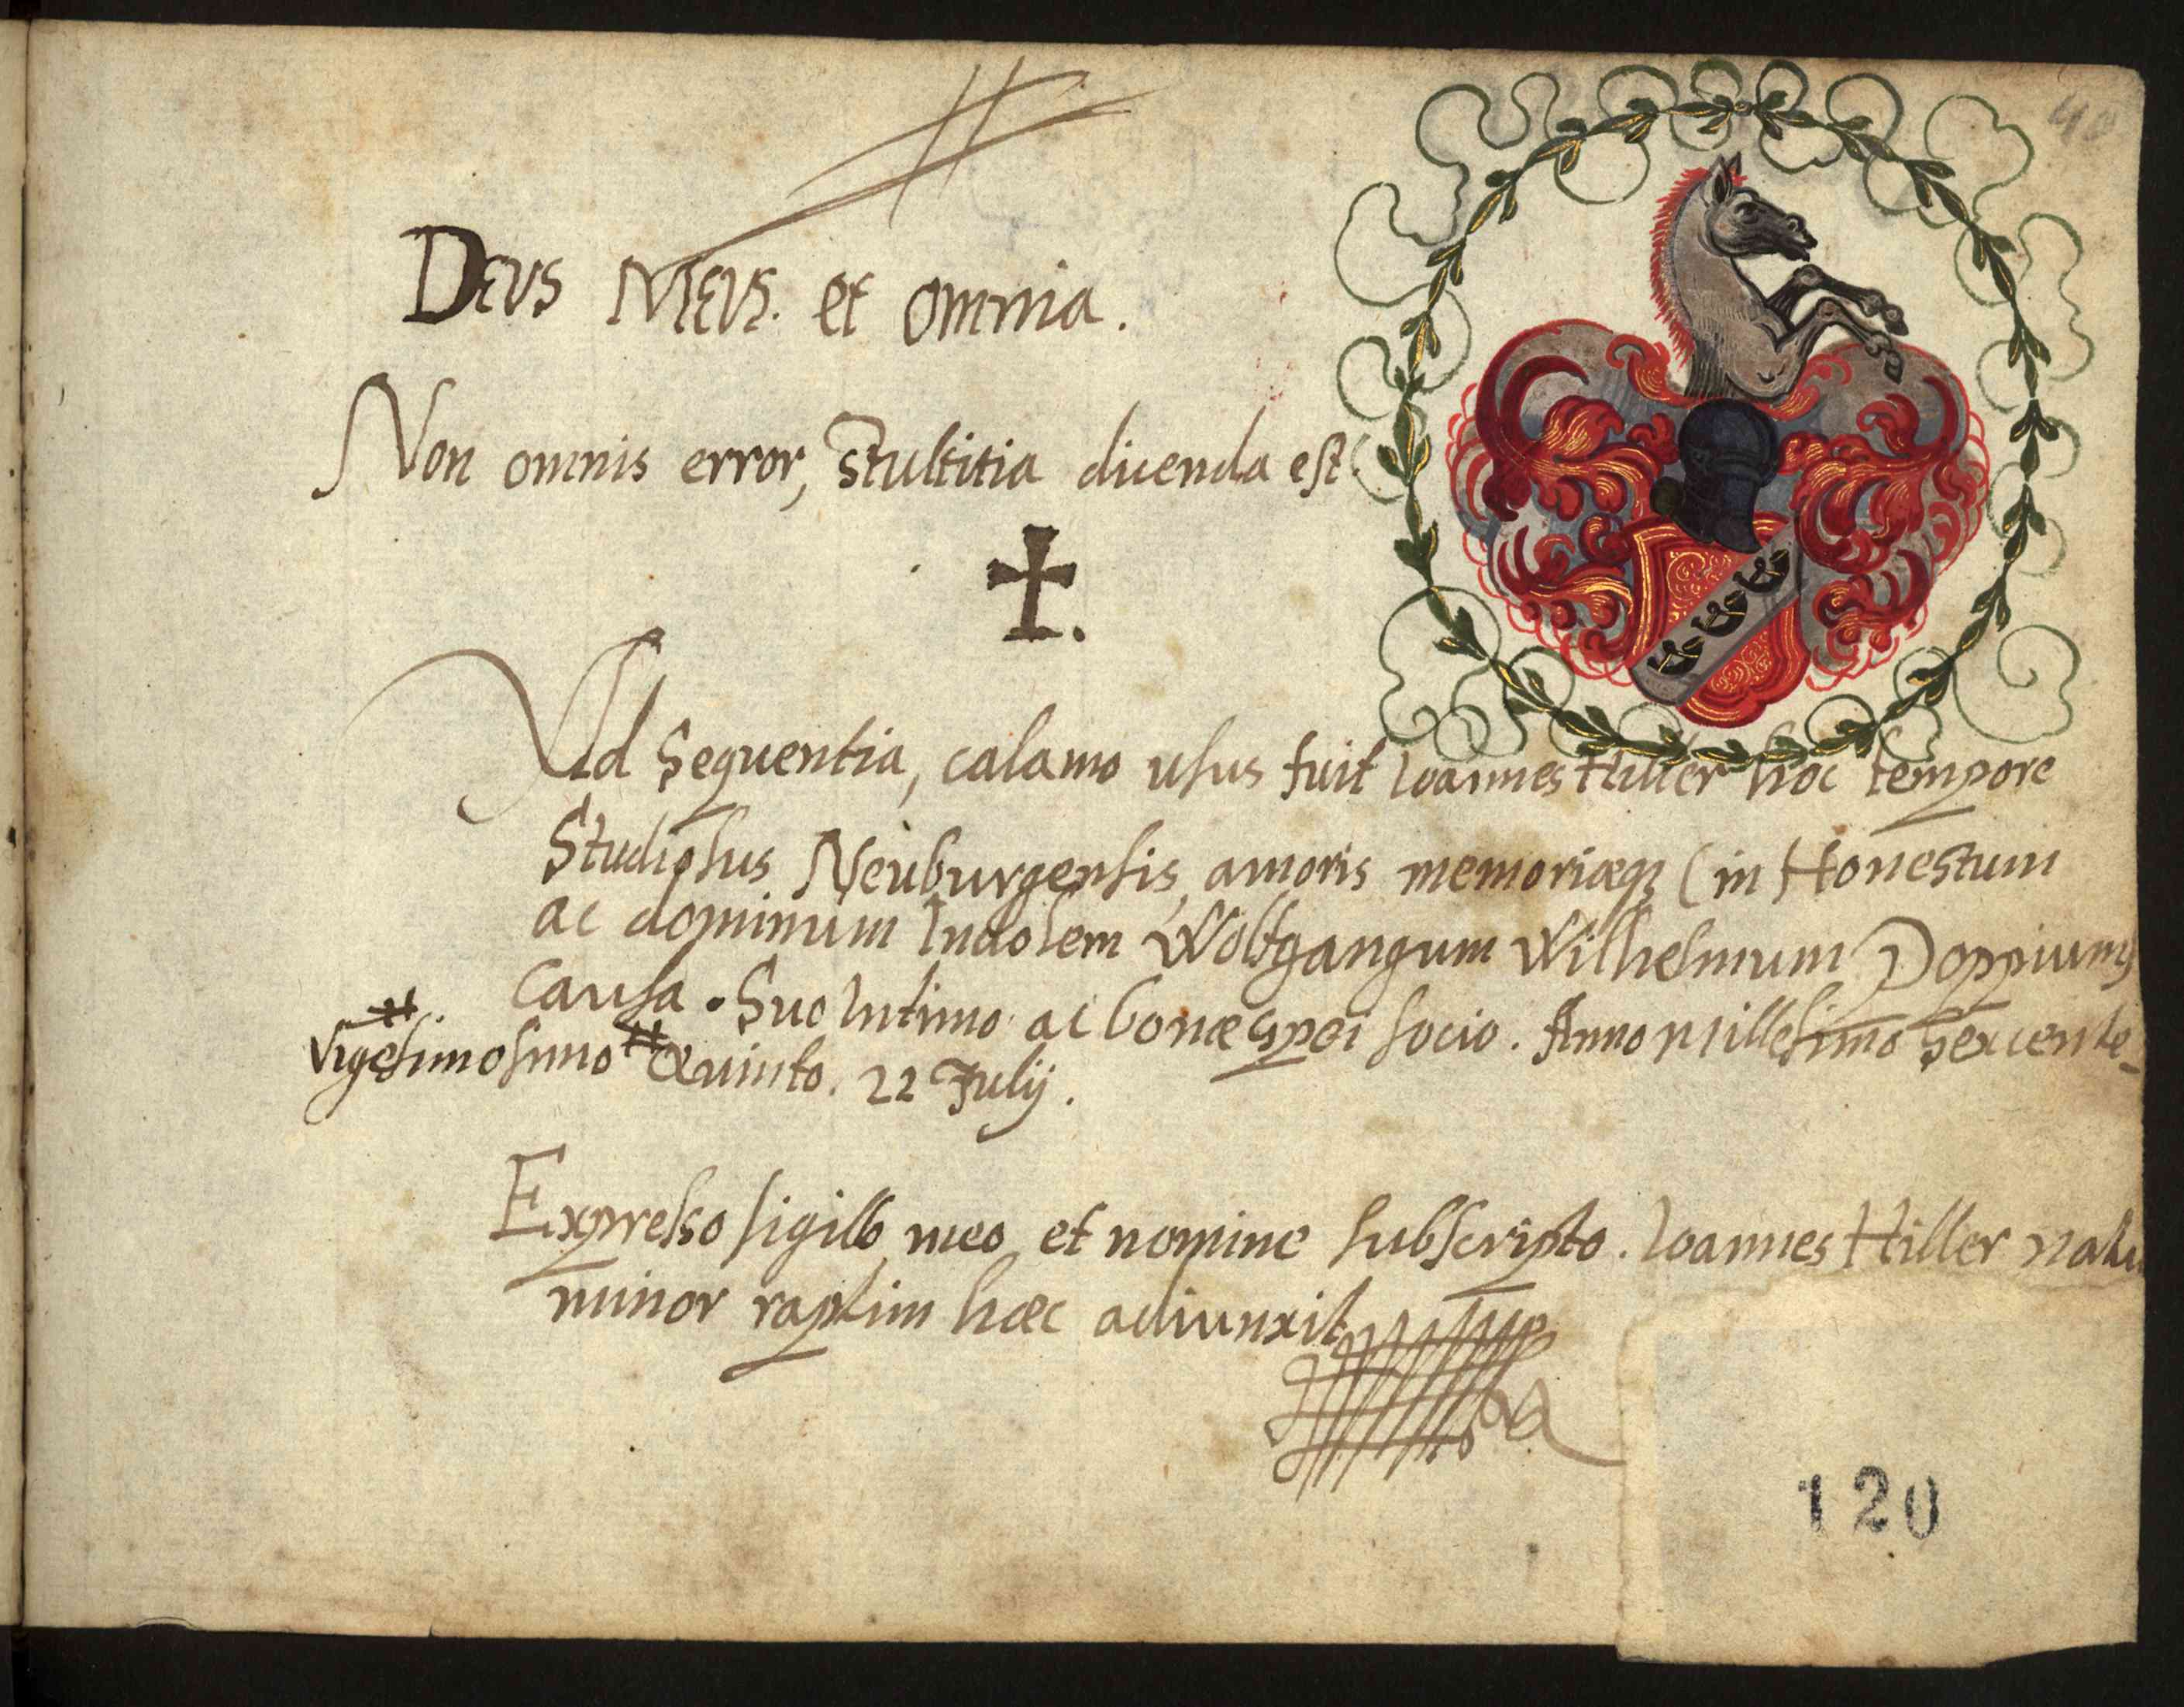 40
Deus Meus. et omnia.
Non omnis error, Stultitia dicenda est
Ad Sequentia, calamo usus fuit Ioannes Hiller hoc tempore
Studiosus Neuburgensis, amoris memoriæq; (in Honestum
ac dominum Indolem Wolfgangum Wilhelmum Doppium)
Causa. Suo Intimo ac bonæ spei socio. Anno Millesimo Sexcente-
Vigesimo Quinto. 22 Julij.
Expresso sigillo meo et nomine subscripto. Ioannes Hiller natu
minor raptim hæc adiunxit
120